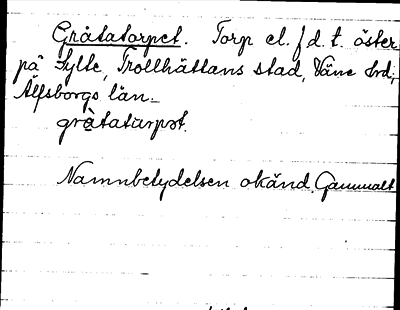 Gråtatorpet. Torp el. f.d. t. öster
på Sylte, Trollhättans stad, Väne hrd,
Älfsborgs län.
gråtatorpet.
Namnbetydelsen okänd. Gammalt